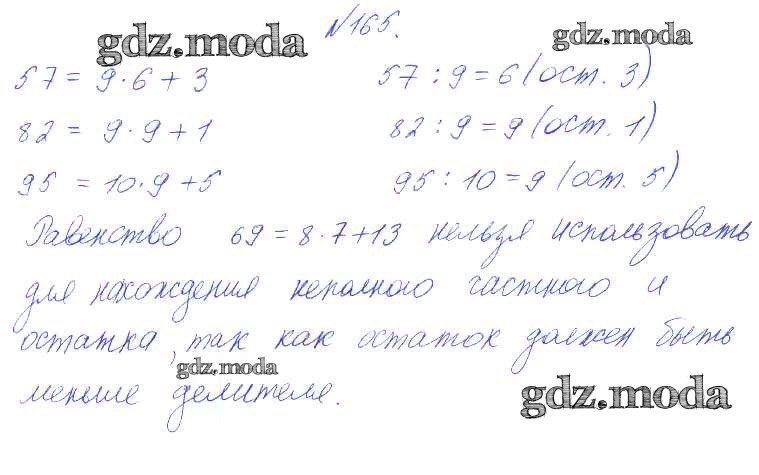 №165.
gdz.moda gdz.moda
57 = 9·6 + 3 57 : 9 = 6 (ост. 3)
82 = 9·9 + 1 82 : 9 = 9 (ост. 1)
95 = 10·9 + 5 95 : 10 = 9 (ост. 5)
Равенство 69 = 8·7 + 13 нельзя использовать
для нахождения неполного частного и
остатка, так как остаток должен быть
gdz.moda
меньше делителя.
gdz.moda